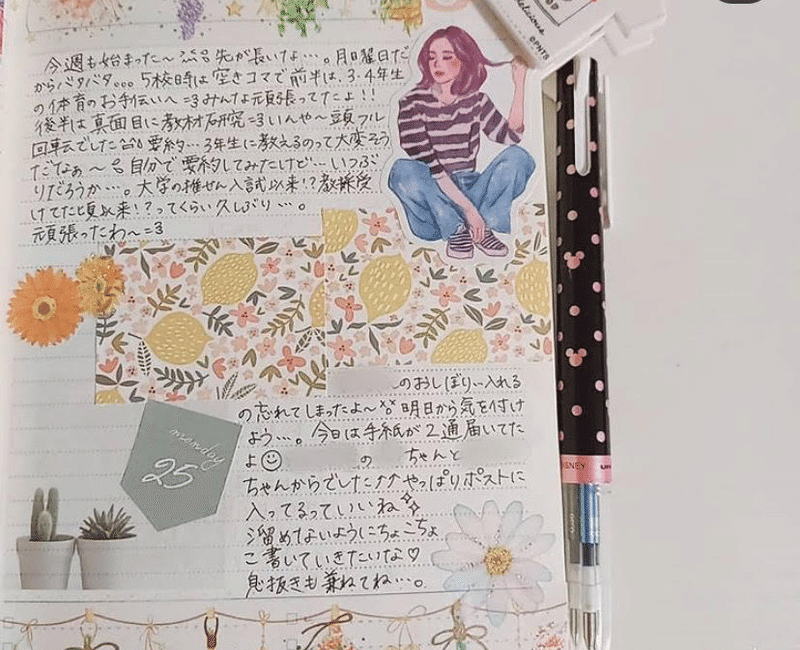 Delicious
©PNTS
今週も始まった〜 先が長いな…。月曜日だ
からバタバタ…5校時は空きコマで前半は、3・4年生
の体育のお手伝いへ=3みんな頑張ってたよ!!
後半は真面目に教材研究=3いんや〜頭フル
回転でした 要約…3年生に教えるのって大変そう
だなぁ〜 自分で要約してみたけど…いつぶ
りだろうか…。大学の推せん入試以来!?教採受
けてた頃以来!?ってくらい久しぶり…。
頑張ったわ〜=3
のおしぼり…入れる
の忘れてしまったよ〜 明日から気を付け
よう…。今日は手紙が2通届いてた
よ☺ の ちゃんと
ちゃんからでした⤴⤴やっぱりポストに
入ってるっていいね
溜めないようにちょこちょ
こ書いていきたいな♡
息抜きも兼ねてね…。
monday
25
DISNEY
uni